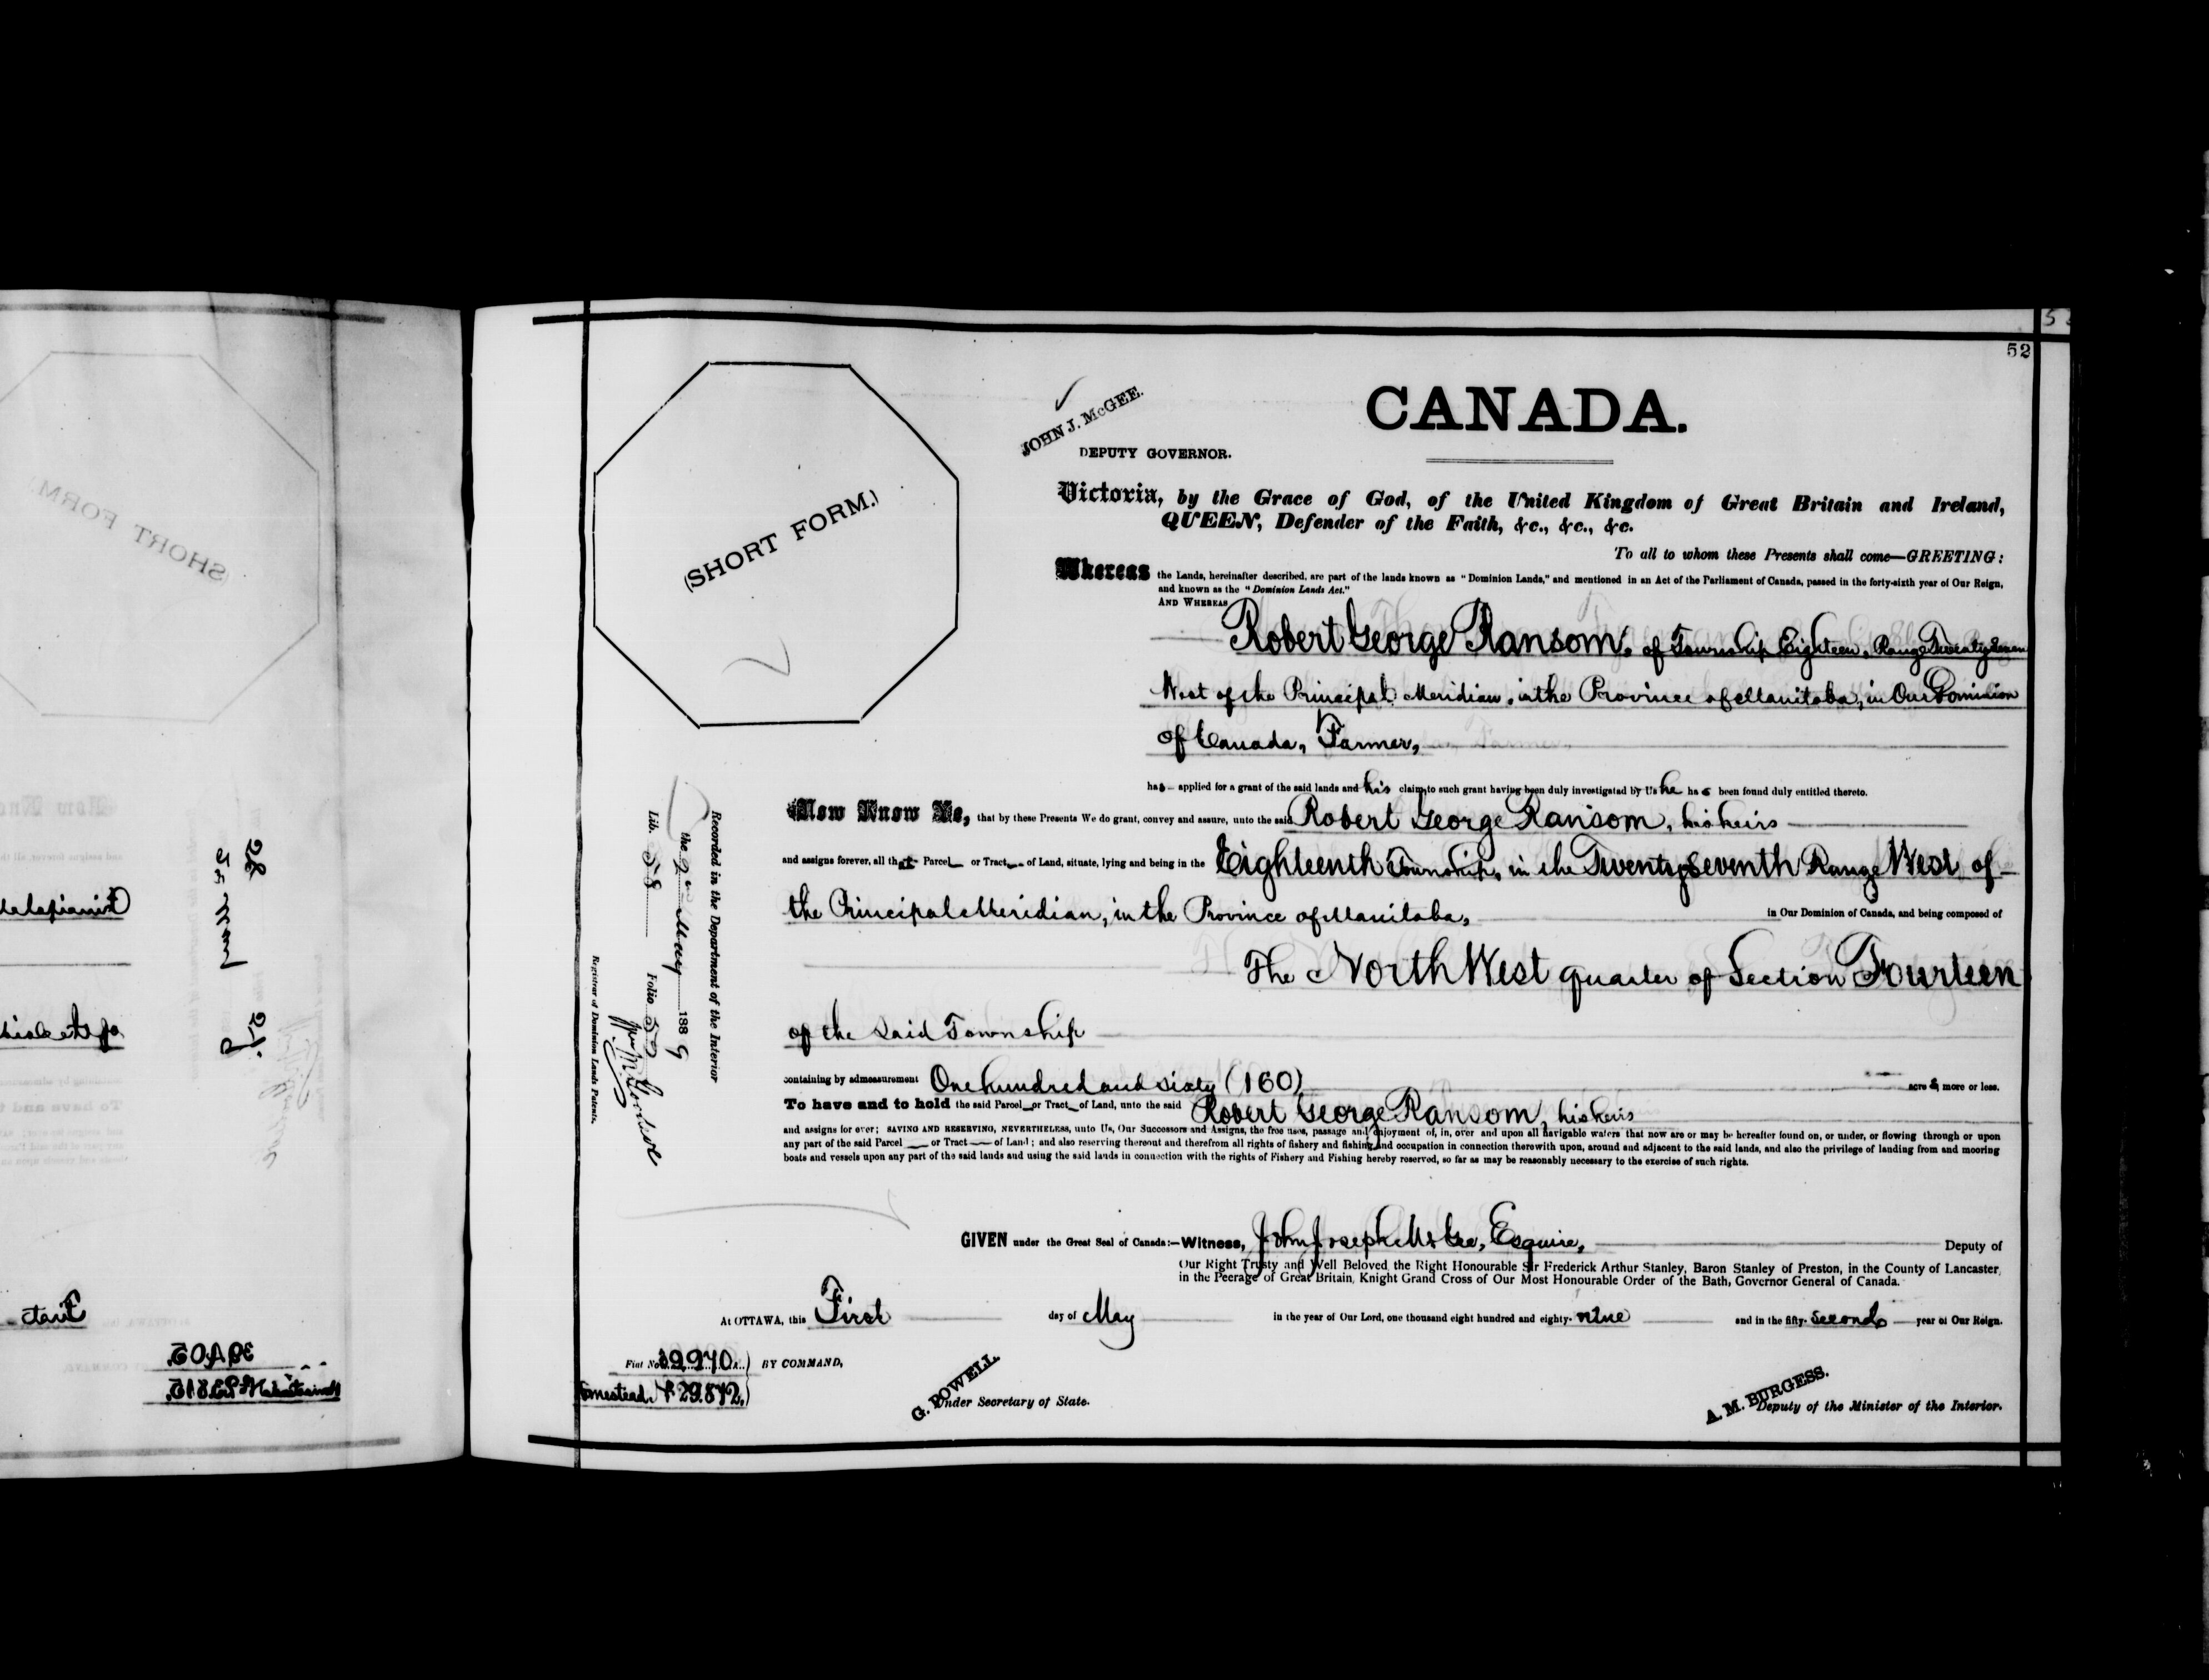 52
CANADA.
JOHN J. McGEE.
DEPUTY GOVERNOR.
(SHORT FORM.)
Victoria, by the Grace of God, of the United Kingdom of Great Britain and Ireland,
QUEEN, Defender of the Faith, &c., &c., &c.
To all to whom these Presents shall come—GREETING:
Whereas the Lands, hereinafter described, are part of the lands known as "Dominion Lands," and mentioned in an Act of the Parliament of Canada, passed in the forty-sixth year of Our Reign,
and known as the "Dominion Lands Act."
AND WHEREAS
Robert George Ransom, of Township Eighteen, Range Twenty Seven
West of the Principal Meridian, in the Province of Manitoba, in Our Dominion
of Canada, Farmer,
has applied for a grant of the said lands and his claim to such grant having been duly investigated by Us he has been found duly entitled thereto.
Now Know Ye, that by these Presents We do grant, convey and assure, unto the said Robert George Ransom, his heirs
and assigns forever, all that Parcel or Tract of Land, situate, lying and being in the Eighteenth Township, in the Twenty Seventh Range West of
the Principal Meridian, in the Province of Manitoba, in Our Dominion of Canada, and being composed of
The North West quarter of Section Fourteen
of the said Township
containing by admeasurement One hundred and sixty (160) acres, more or less.
To have and to hold the said Parcel or Tract of Land, unto the said Robert George Ransom, his heirs
and assigns for ever; SAVING AND RESERVING, NEVERTHELESS, unto Us, Our Successors and Assigns, the free uses, passage and enjoyment of, in, over and upon all navigable waters that now are or may be hereafter found on, or under, or flowing through or upon
any part of the said Parcel or Tract of Land; and also reserving thereout and therefrom all rights of fishery and fishing and occupation in connection therewith upon, around and adjacent to the said lands, and also the privilege of landing from and mooring
boats and vessels upon any part of the said lands and using the said lands in connection with the rights of Fishery and Fishing hereby reserved, so far as may be reasonably necessary to the exercise of such rights.
GIVEN under the Great Seal of Canada:—Witness, John Joseph McGee, Esquire, Deputy of
Our Right Trusty and Well Beloved the Right Honourable Sir Frederick Arthur Stanley, Baron Stanley of Preston, in the County of Lancaster,
in the Peerage of Great Britain, Knight Grand Cross of Our Most Honourable Order of the Bath, Governor General of Canada.
At OTTAWA, this First day of May in the year of Our Lord, one thousand eight hundred and eighty-nine and in the fifty-second year of Our Reign.
Fiat No. 39970 BY COMMAND,
Homestead No 29.872.
G. POWELL.
Under Secretary of State.
A. M. BURGESS.
Deputy of the Minister of the Interior.
Recorded in the Department of the Interior
the 2nd May 1889
Lib. 58 Folio 52
Registrar of Dominion Lands Patents.